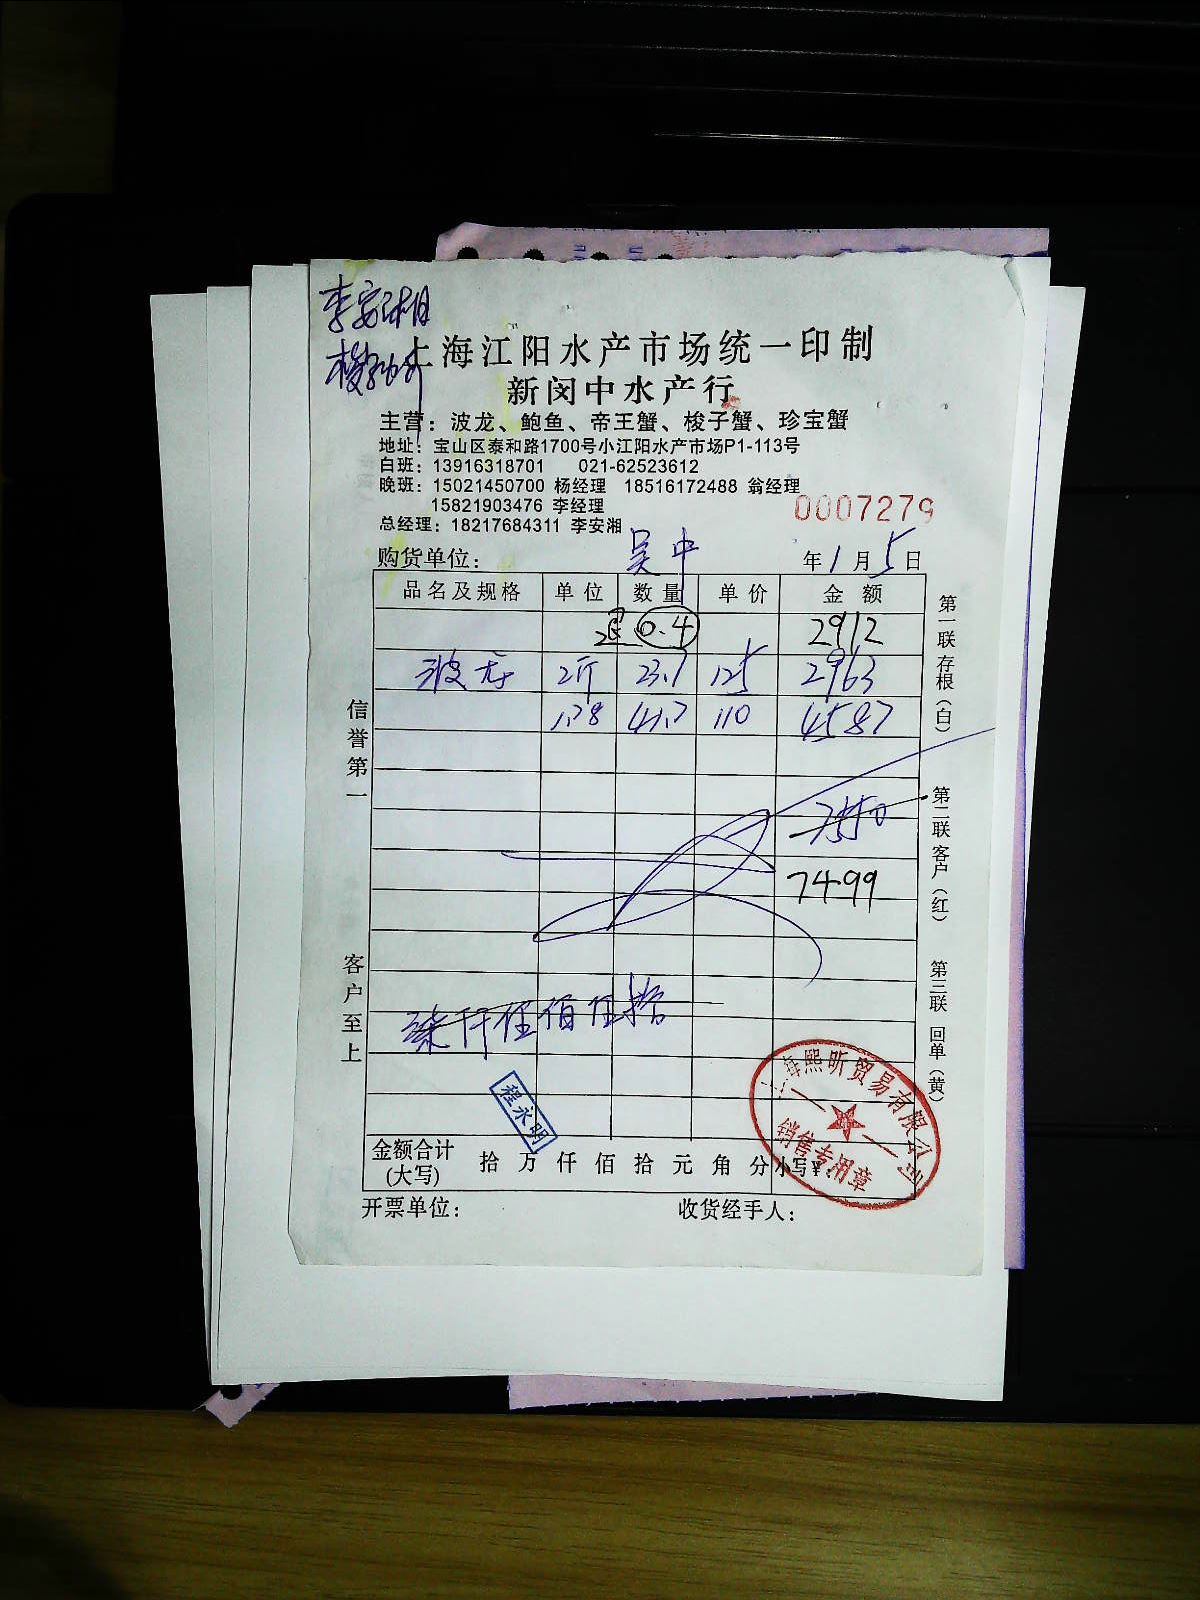 李安湘
上海江阳水产市场统一印制
新闵中水产行
主营：波龙、鲍鱼、帝王蟹、梭子蟹、珍宝蟹
地址：宝山区泰和路1700号小江阳水产市场P1-113号
白班：13916318701 021-62523612
晚班：15021450700 杨经理 18516172488 翁经理
15821903476 李经理
总经理：18217684311 李安湘
0007279
购货单位： 吴中 年1月5日
品名及规格 单位 数量 单价 金额
退 0.4 2912
波龙 2斤 23.7 125 2963
1.7-8 41.7 110 4587
7550
7499
柒仟伍佰伍拾
程永明
金额合计(大写) 拾 万 仟 佰 拾 元 角 分 小写¥：
开票单位： 收货经手人：
信誉第一
客户至上
第一联 存根（白）
第二联 客户（红）
第三联 回单（黄）
上海熙昕贸易有限公司
销售专用章